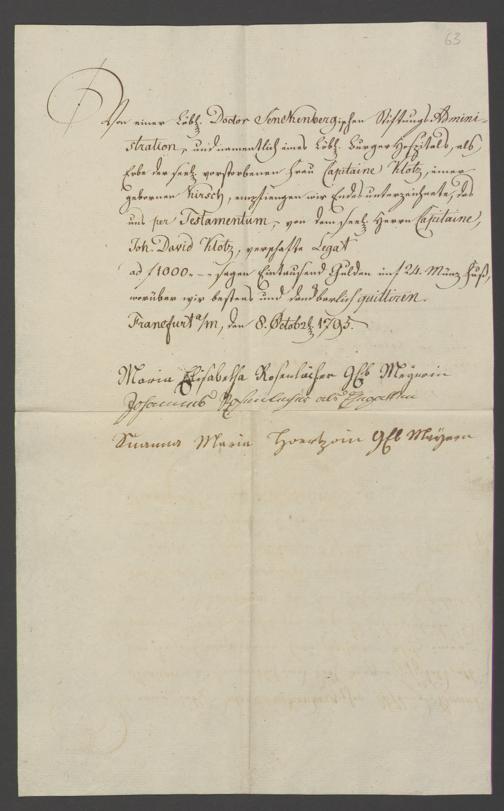 63
Von einer Löbl. Doctor Senckenbergischen Stiftungs-Admini-
stration, und namentlich eines Löbl. Burger Hospitals, als
Erbe der seel. verstorbenen Frau Capitaine Klotz, einer
gebornen Kirsch, empfiengen wir Endesunterzeichnete, das
uns per Testamentum, von dem seel. Herrn Capitaine,
Joh. David Klotz, vermachte Legat
ad f 1000. sagen Eintausend Gulden im f 24. Münz Fuß,
worüber wir bestens und danckbarlich quittiren.
Francfurt a/m, den 8. Octobr. 1795.
Maria Elisabetha Rosenlächer geb Meyerin
Johannes Rosenlacher als Ehegatten
Susanna Maria geb Meyern